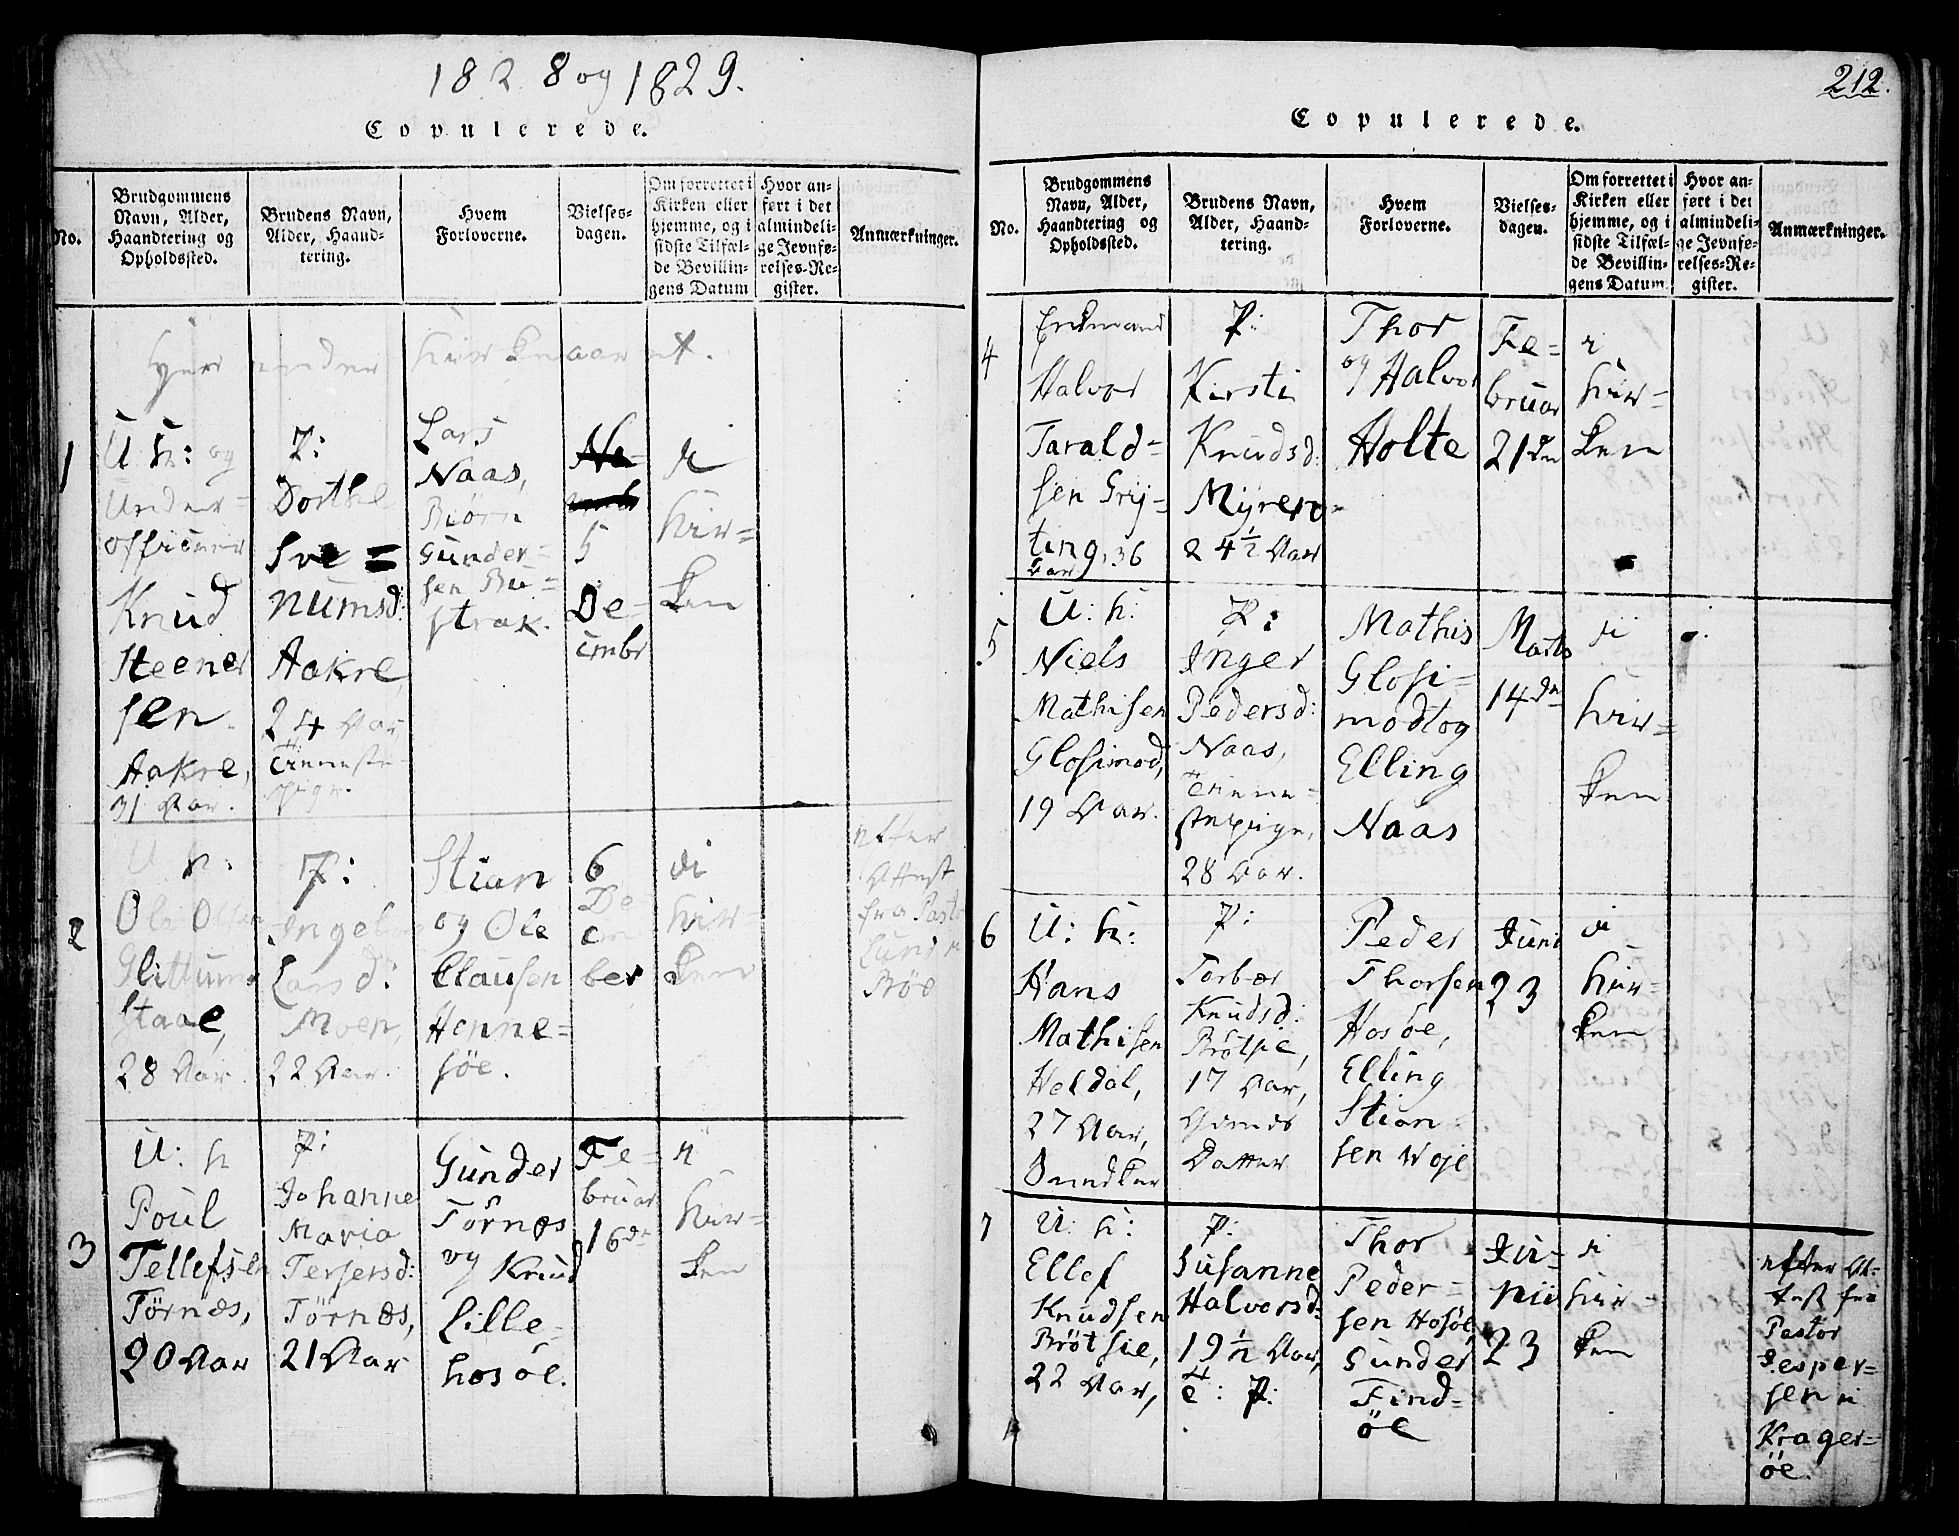 1828 og 1829.
Copulerede.
No.
Brudgommens
Navn, Alder,
Haandtering og
Opholdssted.
Brudens Navn,
Alder, Haand-
tering.
Hvem
Forloverne.
Vielses-
dagen.
Om forrettet i
Kirken eller
hjemme, og i
sidste Tilfæl-
de Bevillin-
gens Datum
Hvor an-
ført i det
almindeli-
ge Jevnfø-
relses-Re-
gister.
Anmærkninger.
Kirkeaaret.
1
U. K: og
Under-
officeer
Knud
Steener
sen
Aakre,
31 Aar.
P:
Dorthe
Sve=
numsd:
Aakre,
24 Aar
Tieneste-
pige.
Lars
Naas,
Biørn
Gunder=
sen Bu=
strak.
5
De-
cmbr
i
Kir=
ken
2
U K:
Ole Olsen
Glittum
staae,
28 Aar.
P:
Ingel
Larsd:
Moen,
22 Aar.
Stian
og Ole
Clausen
Henne=
søe.
6
De
cm
ber
i
Kir=
ken
efter
Attest
fra Pastr
Lund
Bøe
3
U: K
Poul
Tellefsen
Törnæs,
20 Aar
P:
Johanne
Maria
Tersersd:
Törnæs,
21 Aar
Gunder
Törnæs
og Knud
Lille-
hosöe.
Fe-
bruar
16de
i
Kir=
ken
212.
Copulerede.
No.
Brudgommens
Navn, Alder,
Haandtering og
Opholdssted.
Brudens Navn,
Alder, Haand-
tering.
Hvem
Forloverne.
Vielses-
dagen.
Om forrettet i
Kirken eller
hjemme, og i
sidste Tilfæl-
de Bevillin-
gens Datum.
Hvor an-
ført i det
almindeli-
ge Jevnfø-
relses-Re-
gister.
Anmærkninger.
4
Enkmand
Halvor
Tarald=
sen Gry=
ting, 36
Aar
P:
Kirsti
Knudsd:
Myrero=
24½ Aar
Thor
og Halvor
Holte
Fe=
bruar
21de
i
Kir=
ken
5
U: K:
Niels
Mathisen
Glosimod,
19 Aar.
P:
Inger
Pedersd:
Naas,
Tiene=
stepige,
28 Aar.
Mathis
Glosi=
modtog
Elling
Naas
Marts
14de
i
Kir=
ken
6
U: K:
Hans
Mathisen
Heldal,
27 Aar,
P:
Torbor
Knudsd:
Brötsie,
17 Aar,
Datter
Peder
Thorsen
Hosöe,
Elling
Stian
sen Woje
Juni
23
i
Kir=
ken
7
U: K:
Ellef
Knudsen
Brötsie,
22 Aar,
P:
Susanne
Halvorsd:
19½ Aar,
t: P:
Thor
Peder=
sen Hosöe,
Gunder
Find=
öe
Ju=
nii
23
i
Kir=
ken
efter At-
test fra
Pastor
Jesper=
sen i
Krager=
öe.